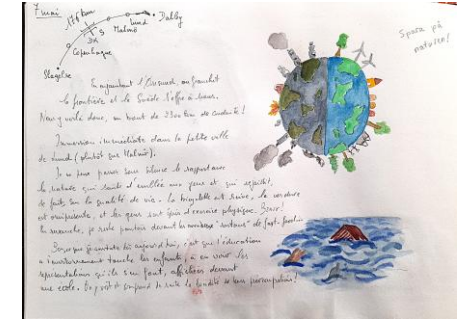 7 mai
176 km
Dalby
Lund
Malmö
S
DK
Copenhague
Slagelse
Spara på
naturen!
En empruntant l'Öresund, on franchit
la frontière et la Suède s'offre à nous.
Nous y voilà donc, au bout de 2300 km de
Immersion immédiate dans la petite ville
de Lund (plutôt que Malmö).
Je ne peux passer sous silence le rapport avec
la nature qui saute d'emblée aux yeux et qui
de fait, sur la qualité de vie. La bicyclette est reine, la verdure
est omniprésente, et les gens sont épris d'exercice physique. Bravo!
En revanche, je reste pantois devant les nombreux de fast-food...
Ce que je aujourd'hui, c'est que l'éducation
à l'environnement touche les enfants, à en voir les
représentations qu'ils en font, affichées devant
une école.